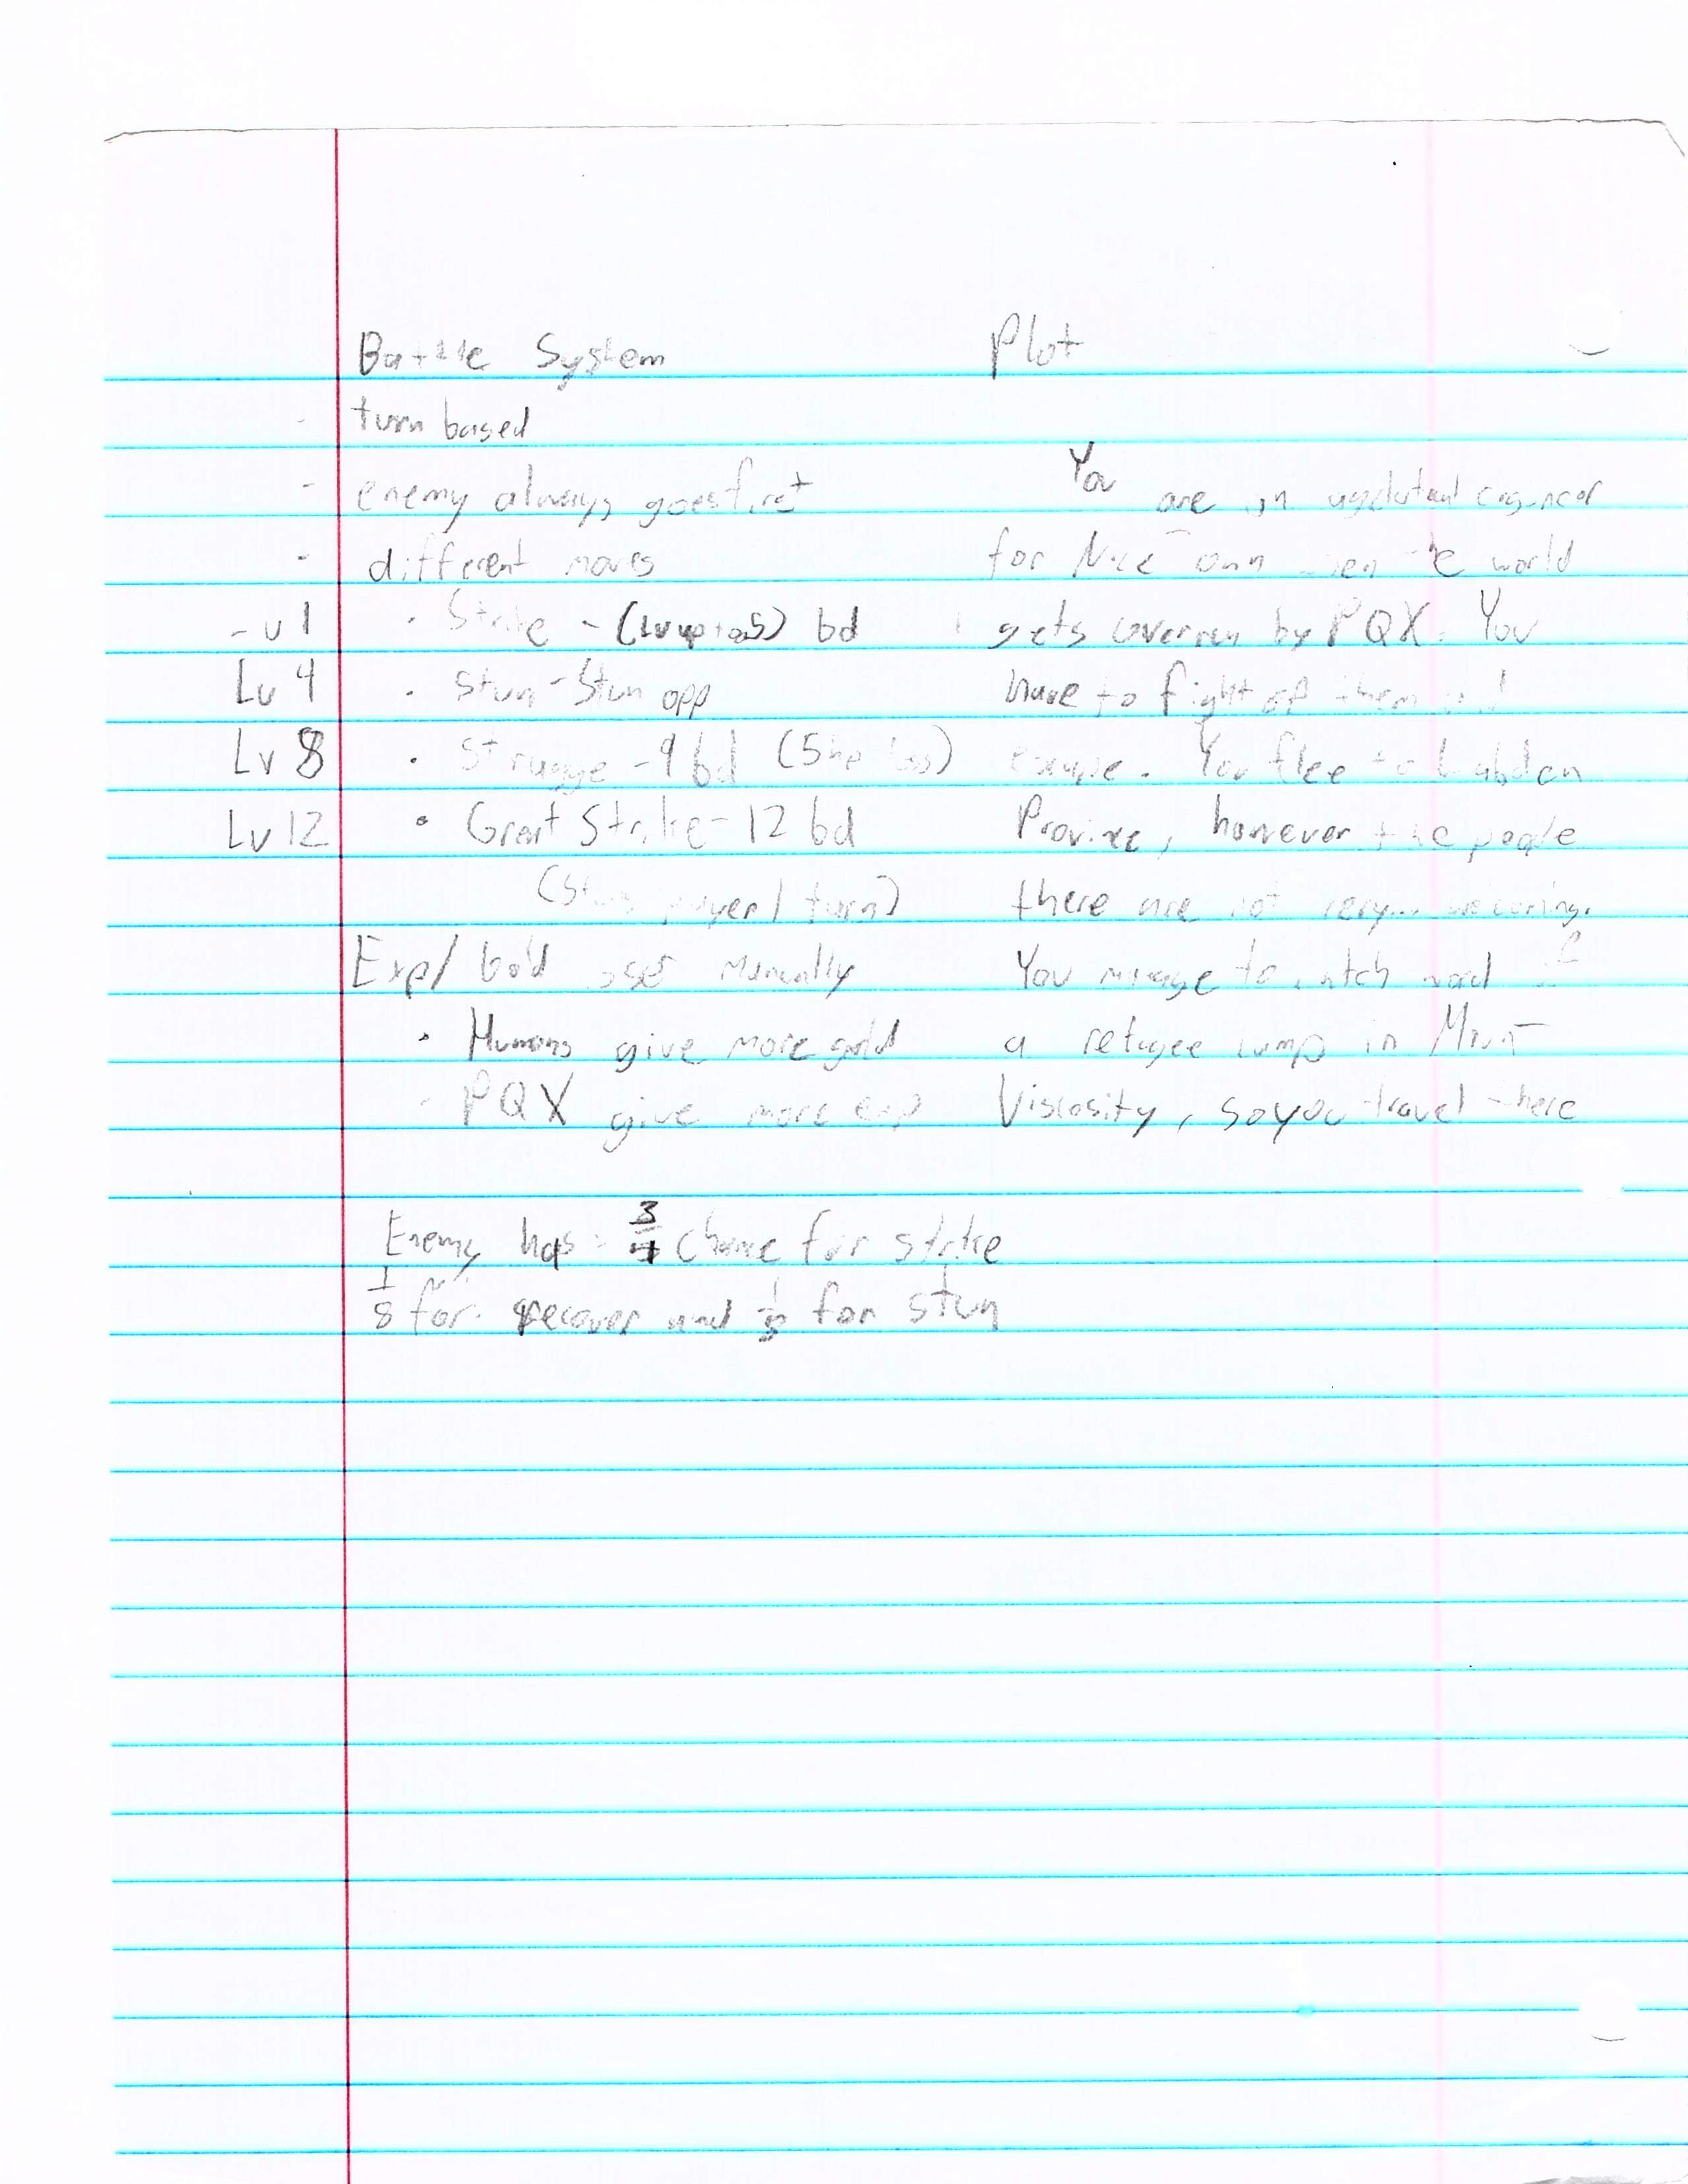 Battle System
- turn based
- enemy always goes first
- different moves
Lv 1 · Strike - bd
Lv 4 · Stun - Stun opp
Lv 8 · - 9 bd (5 hp loss)
Lv 12 · Great Strike - 12 bd
(Stuns player 1 turn)
Exp/ Gold manually
· Humans give more gold
· PQX give more exp
Enemy has 3/4 chance for strike
1/8 for recover and 1/8 for stun
Plot
You are an engineer
for the world
gets overrun by PQX. You
have to fight of them
escape. You flee to
Province, however the people
there are not very... welcoming.
You manage to
a refugee camp in
Viscosity, so you travel there